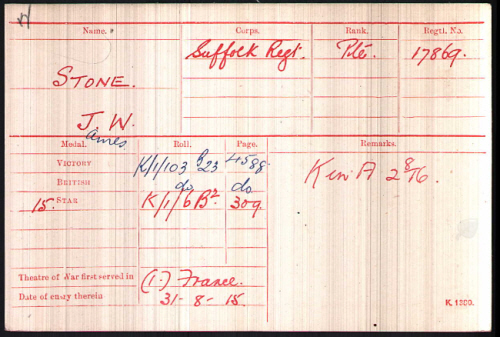 Name.
Corps.
Rank.
Regtl. No.
STONE.
Suffolk Regt.
Pte.
17869.
J. W.
ames
Medal.
Roll.
Page.
Remarks.
VICTORY
K/1/103 B23
4588
BRITISH
do
do
15. STAR
K/1/6B2.
309.
Theatre of War first served in
(1.) France.
Date of entry therein
31-8-15.
K 1380.